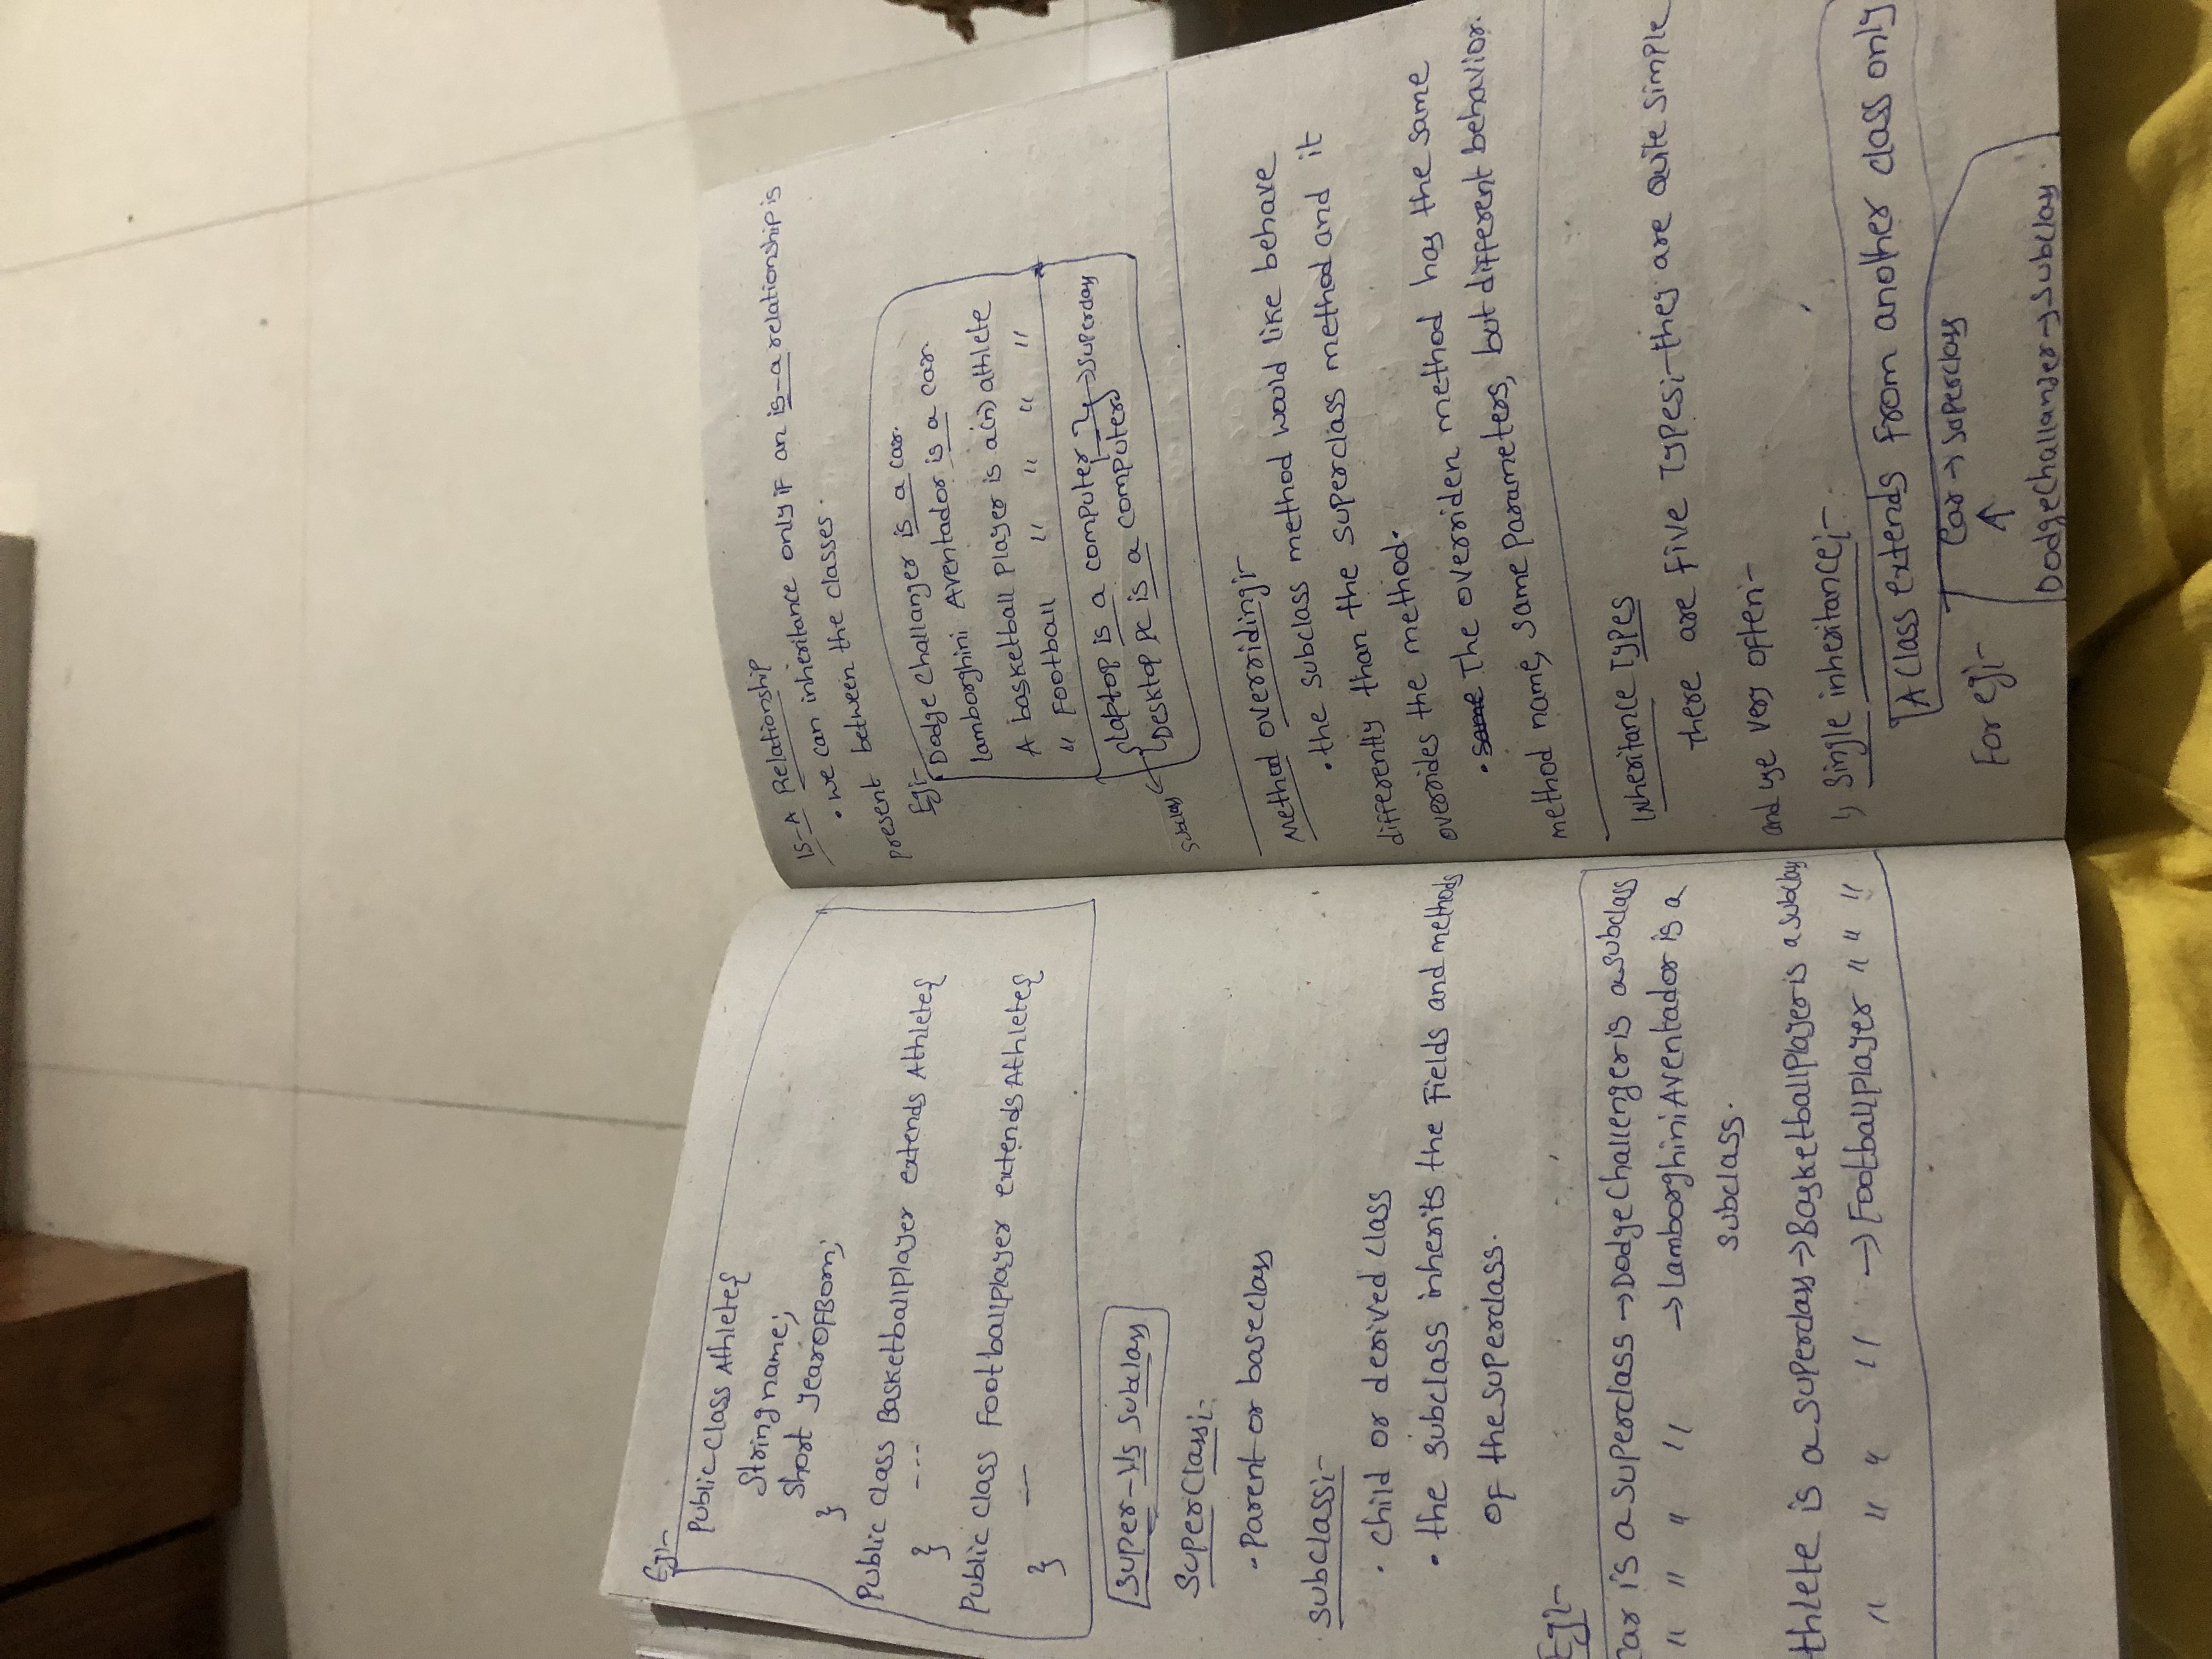 Eg:-
Public Class Athlete{
String name;
Short yearOfBorn;
}
Public class BasketballPlayer extends Athlete{
---
}
Public class FootballPlayer extends Athlete{
---
}
Super-Vs Subclass
SuperClass:-
- Parent or baseclass
Subclass:-
• child or derived class
• the subclass inherits the Fields and methods
of the superclass.
Eg:-
Car is a superclass → DodgeChallenger is a subclass
" " " " → LamborghiniAventador is a
subclass.
thlete is a superclass → BasketballPlayer is a subclass
" " " " → FootballPlayer " " "
IS-A Relationship
• we can inheritance only if an is-a relationship is
present between the classes.
Eg:-
Dodge Challanger is a car.
lamborghini Aventador is a car.
A basketball player is a(n) athlete
" Football " " " "
laptop is a computer → superclass
Desktop PC is a computer
Subclass ←
Method overriding:-
• the subclass method would like behave
differently than the superclass method and it
overrides the method.
• same The overriden method has the same
method name, same parameters, but different behavior.
Inheritance Types
There are five Types:- they are quite simple
and use very often:-
1) Single inheritance:-
A class extends from another class only
For eg:-
Car → superclass
↑
DodgeChallanger → subclass.